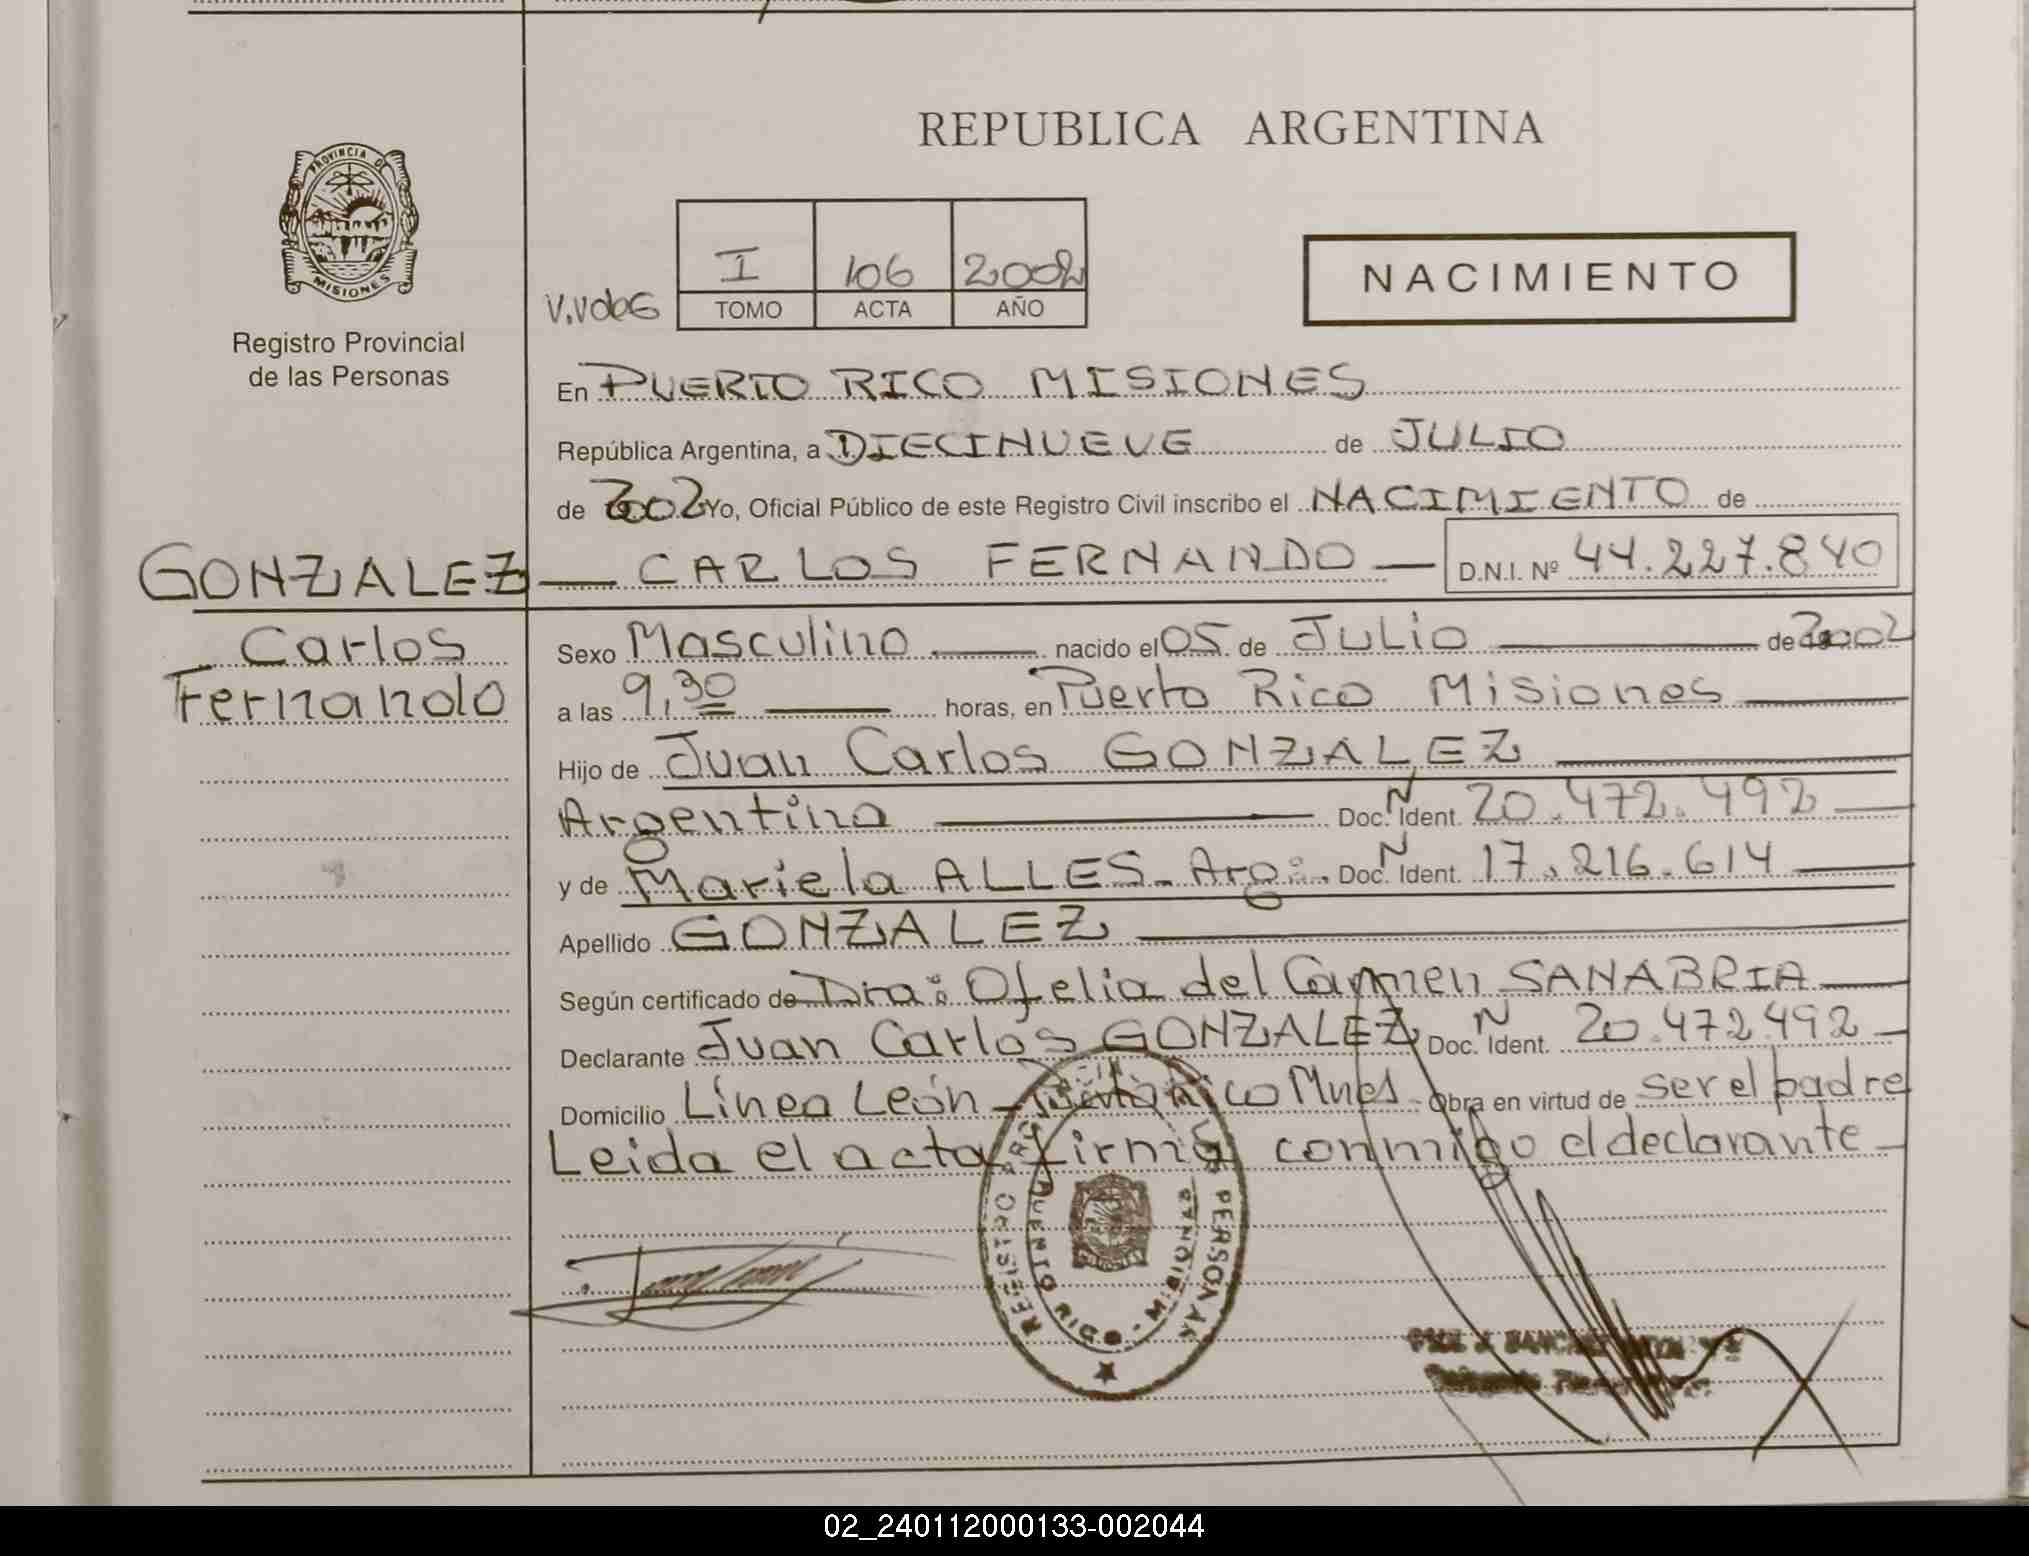 REPUBLICA ARGENTINA
PROVINCIA DE
MISIONES
Registro Provincial
de las Personas
I 106 2002
TOMO ACTA AÑO
NACIMIENTO
En PUERTO RICO MISIONES
República Argentina, a DIECINUEVE de JULIO
de 2002 Yo, Oficial Público de este Registro Civil inscribo el NACIMIENTO de
GONZALEZ — CARLOS FERNANDO — D.N.I. Nº 44.227.840
Carlos
Fernando
Sexo Masculino — nacido el 05 de JULIO — de 2002
a las 9,30 — horas, en Puerto Rico Misiones —
Hijo de Juan Carlos GONZALEZ —
Argentino — Doc. N Ident. 20.472.492 —
y de Mariela ALLES - Arg. Doc. N Ident. 17.216.614 —
Apellido GONZALEZ —
Según certificado de Dra: Ofelia del Carmen SANABRIA —
Declarante Juan Carlos GONZALEZ Doc. N Ident. 20.472.492 —
Domicilio Línea León - Puerto Rico Mnes - Obra en virtud de ser el padre
Leida el acta firma conmigo el declarante —
02_240112000133-002044